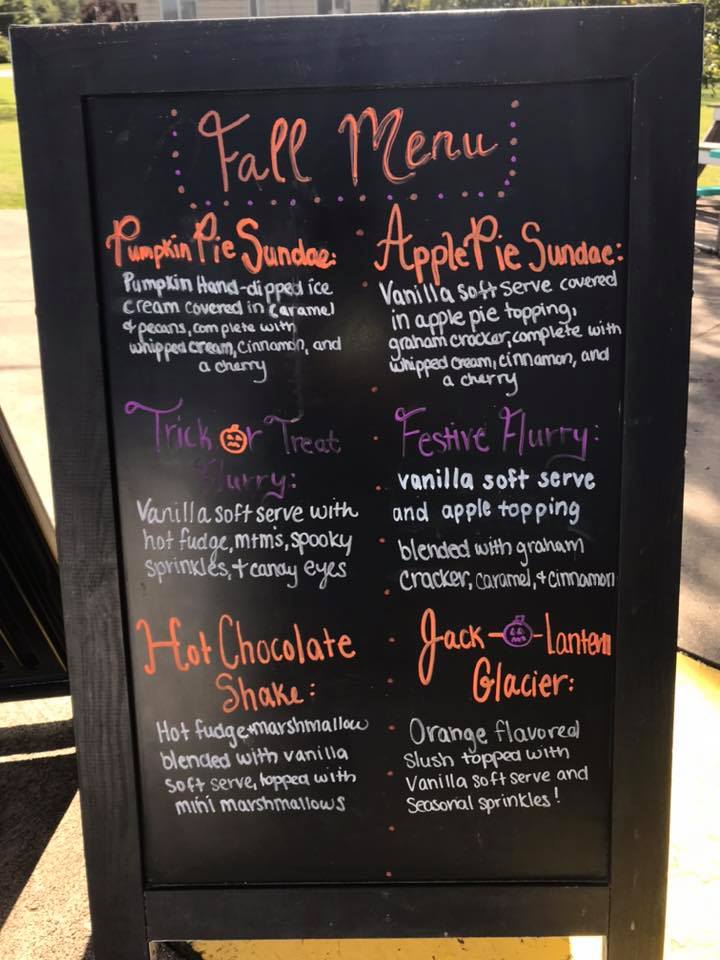 Fall Menu
Pumpkin Pie Sundae:
Pumpkin Hand-dipped ice
cream covered in caramel
& pecans, complete with
whipped cream, cinnamon, and
a cherry
Apple Pie Sundae:
Vanilla soft serve covered
in apple pie topping,
graham cracker, complete with
whipped cream, cinnamon, and
a cherry
Trick or Treat
Flurry:
Vanilla soft serve with
hot fudge, m+m's, spooky
sprinkles, + candy eyes
Festive Flurry:
vanilla soft serve
and apple topping
blended with graham
cracker, caramel, + cinnamon
Hot Chocolate
Shake:
Hot fudge + marshmallow
blended with vanilla
soft serve, topped with
mini marshmallows
Jack-O-Lantern
Glacier:
Orange flavored
slush topped with
Vanilla soft serve and
Seasonal sprinkles!